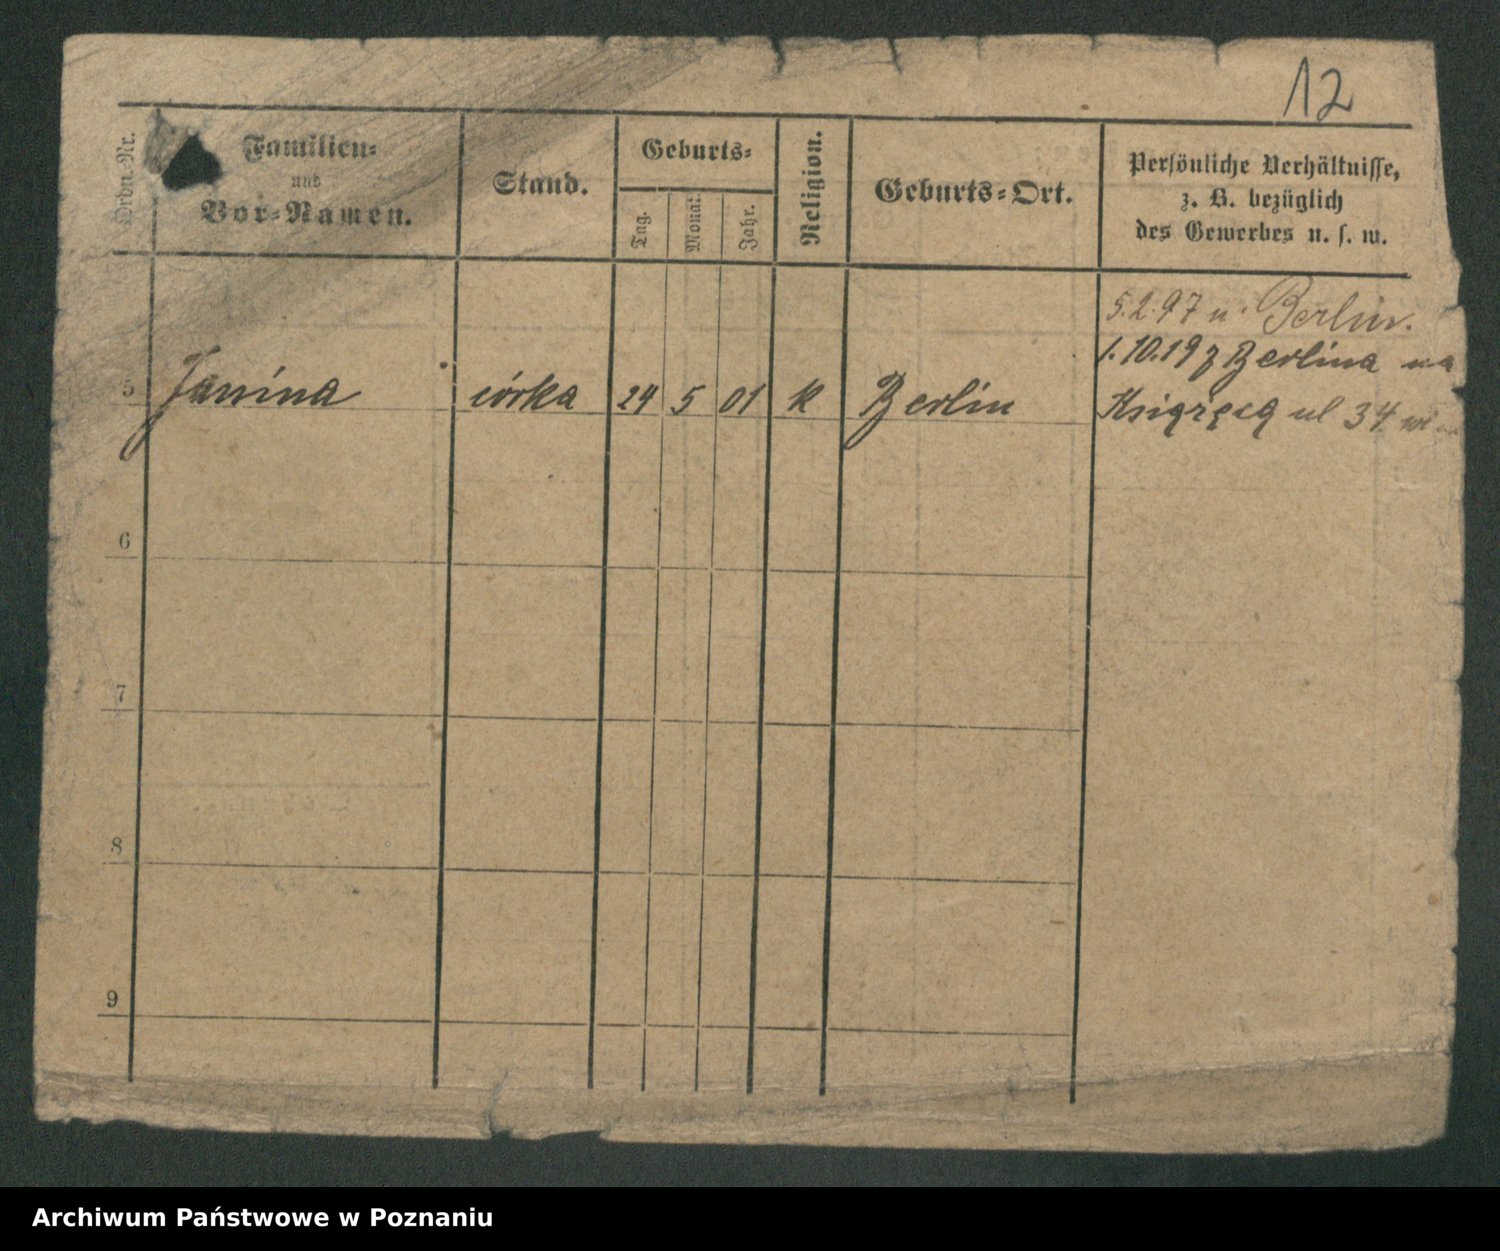 12
Ordn.-Nr.
Familien-
und
Vor-Namen.
Stand.
Geburts-
Tag.
Monat.
Jahr.
Religion.
Geburts-Ort.
Persönliche Verhältnisse,
z. B. bezüglich
des Gewerbes u. s. w.
5.2.97 n. Berlin.
1.10.19 z Berlina na
5 Janina córka 24 5 01 k Berlin Książęcą ul 34
6
7
8
9
Archiwum Państwowe w Poznaniu